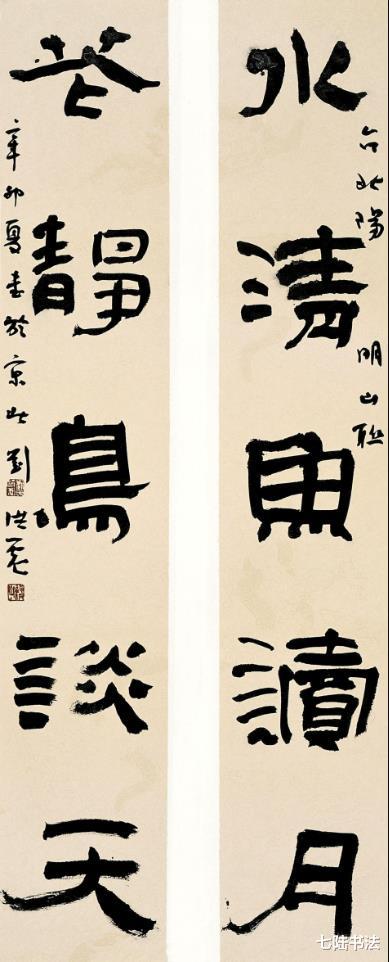 水清魚讀月
台北陽明山聯
花靜鳥談天
辛卯夏書於京北劉洪彪
七陆书法